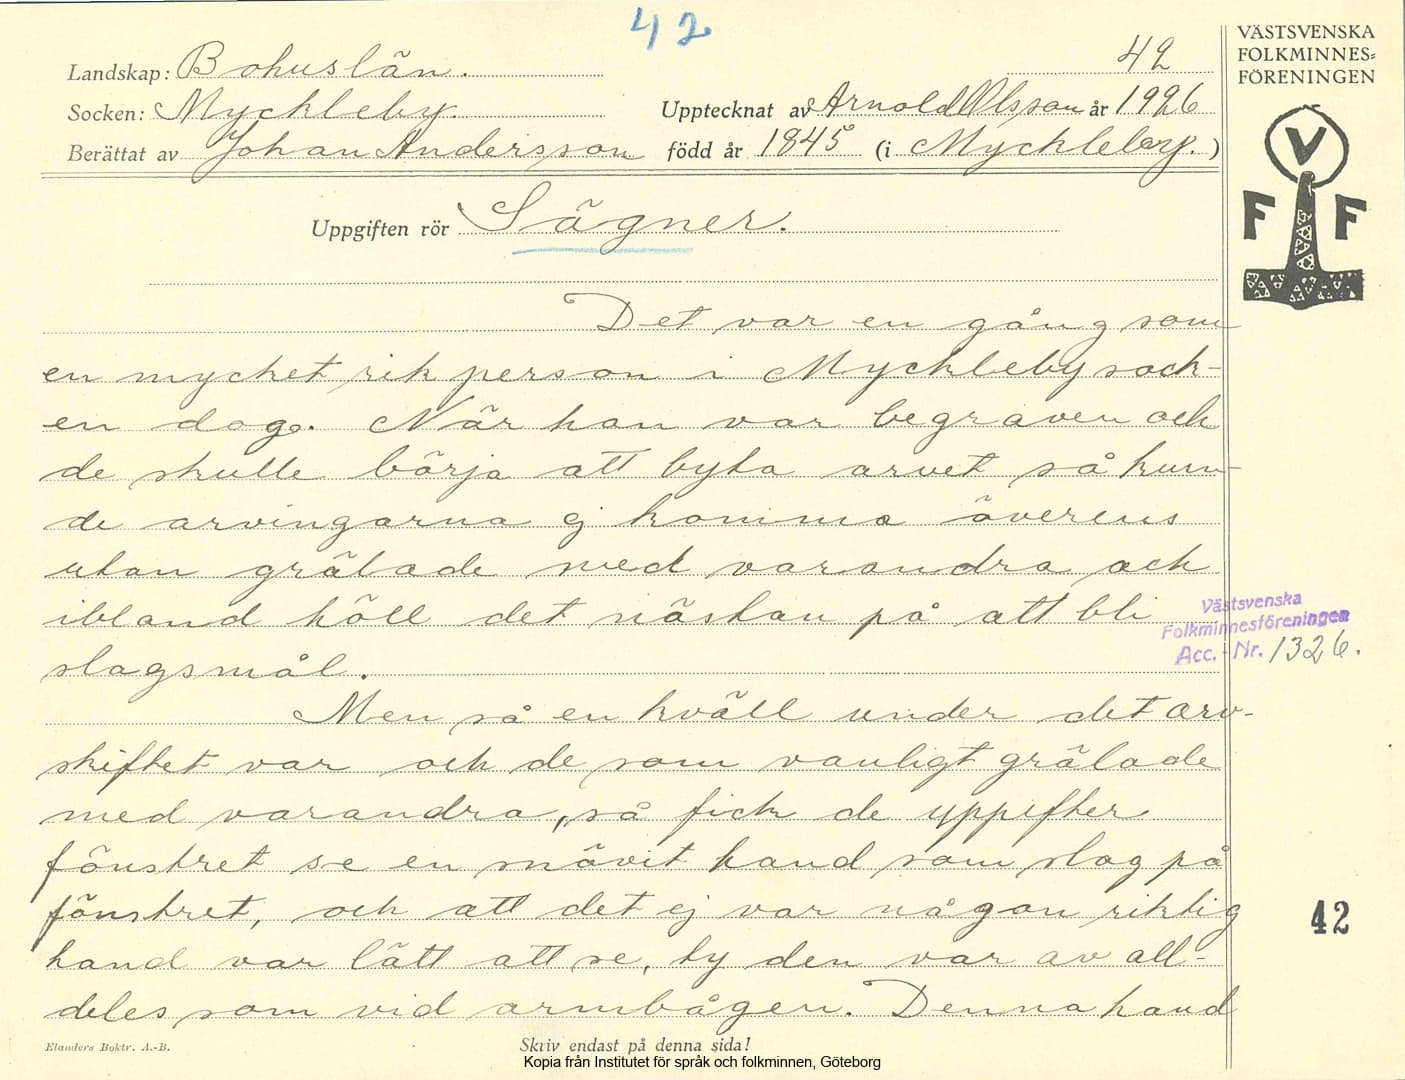 42
VÄSTSVENSKA
FOLKMINNES=
FÖRENINGEN
V
F F
Landskap: Bohuslän. 42
Socken: Myckleby. Upptecknat av Arnold Olsson år 1926
Berättat av Johan Andersson född år 1845 (i Myckleby.)
Uppgiften rör Sägner.
Det var en gång som
en mycket rik person i Myckleby sock-
en dog. När han var begraven och
de skulle börja att byta arvet så kun-
de arvingarna ej komma överens
utan grälade med varandra och
ibland höll det nästan på att bli
slagsmål.
Västsvenska
Folkminnesföreningen
Acc. - Nr. 1326.
Men så en kväll under det arv-
skiftet var och de som vanligt grälade
med varandra, så fick de uppifter
fönstret se en snövit hand som slog på
fönstret, och att det ej var någon riktig
hand var lätt att se, ty den var av all-
deles som vid armbågen. Denna hand
42
Elanders Boktr. A.-B.
Skriv endast på denna sida!
Kopia från Institutet för språk och folkminnen, Göteborg